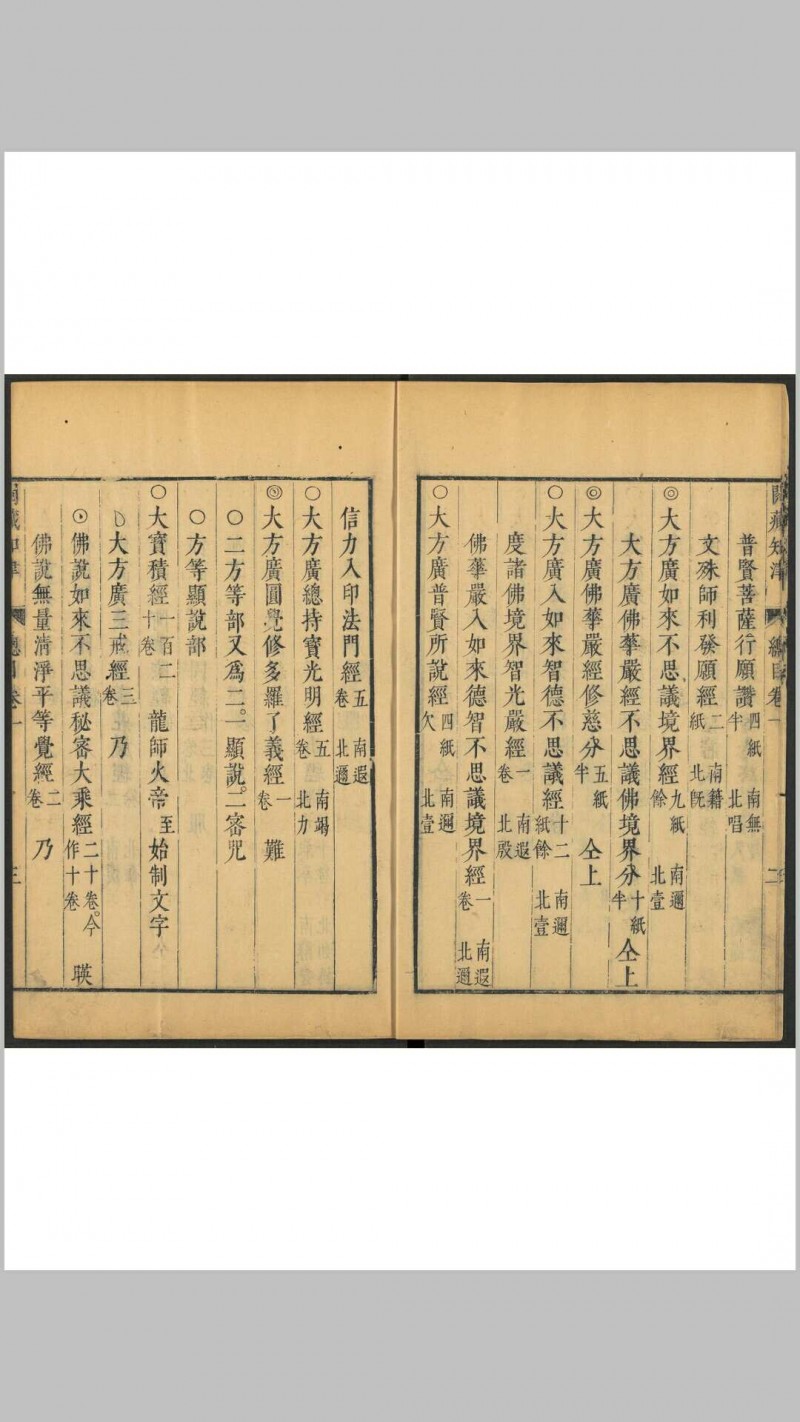 閱藏知津 總目卷一 二
普賢菩薩行願讚 四紙半 南無北唱
文殊師利發願經 二紙 南籍北既
◎大方廣如來不思議境界經 九紙餘 南邇北壹
大方廣佛華嚴經不思議佛境界分 十紙半 仝上
◎大方廣佛華嚴經修慈分 五紙半 仝上
○大方廣入如來智德不思議經 十二紙餘 南邇北壹
度諸佛境界智光嚴經 一卷 南遐北殷
佛華嚴入如來德智不思議境界經 一卷 南遐北邇
○大方廣普賢所說經 四紙欠 南邇北壹
信力入印法門經 五卷 南遐北邇
○大方廣總持寶光明經 五卷 南竭北力
◎大方廣圓覺修多羅了義經 一卷 難
○二方等部又爲二。一顯說。二密咒
○方等顯說部
○大寶積經 一百二十卷 龍師火帝至始制文字
大方廣三戒經 三卷 乃
佛說如來不思議秘密大乘經 二十卷。今作十卷 暎
佛說無量清淨平等覺經 二卷 乃
閱藏知津 總目卷一 三